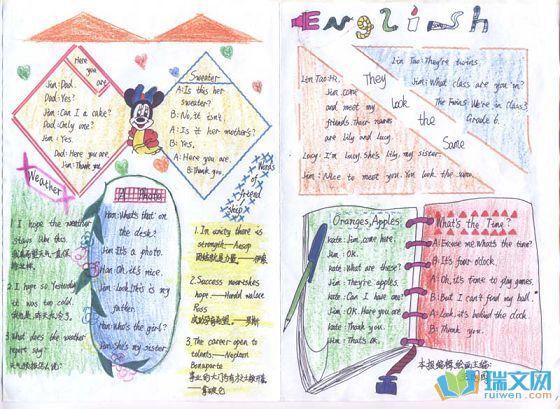 Here
you
are
Jim: Dad.
Dad: Yes?
Jim: Can I a cake?
Dad: Only one?
Jim: Yes.
Dad: Here you are.
Jim: Thank you.
Sweater
A: Is this her
sweater?
B: No, it isn't
A: Is it her mother's?
B: Yes,
A: Here you are.
B: Thank you
Weather
1. I hope the weather
stays like this.
2. I hope so. Yesterday
it was too cold.
3. What does the weather
report say?
A Photo
Han: What's that on
the desk?
Jim: It's a photo.
Han: Oh, it's nice.
Jim: Look, this is my
father.
Han: Who's the girl?
Jim: She's my sister.
Words
of
friend
ship
1. In unity there is
strength—Aesop
团结就是力量。——伊索
2. Success nourishes
hope.
Ross
3. The career open to
talents—Napoleon
Bonaparte
English
Lin Tao: They're twins.
Jim: What class are you in?
The Twins: We're in Class 3,
Grade 6.
They
Look
the
Same
Lin Tao: Hi,
Jim, come
and meet my
friends. Their names
are Lily and Lucy.
Lucy: I'm Lucy. She's Lily, my sister.
Jim: Nice to meet you. You look the same.
Oranges, Apples.
Kate: Jim, come here
Jim: OK.
Kate: What are these?
Jim: They're apples.
Kate: Can I have one?
Jim: OK. Here you are
Kate: Thank you.
Jim: That's OK.
What's the Time?
A: Excuse me. What's the time?
B: It's four o'clock.
A: Oh, it's time to play games.
B: But I can't find my ball.
A: Look, it's behind the clock.
B: Thank you.
本报编辑、绘画主编:
瑞文网
ruiwen.com